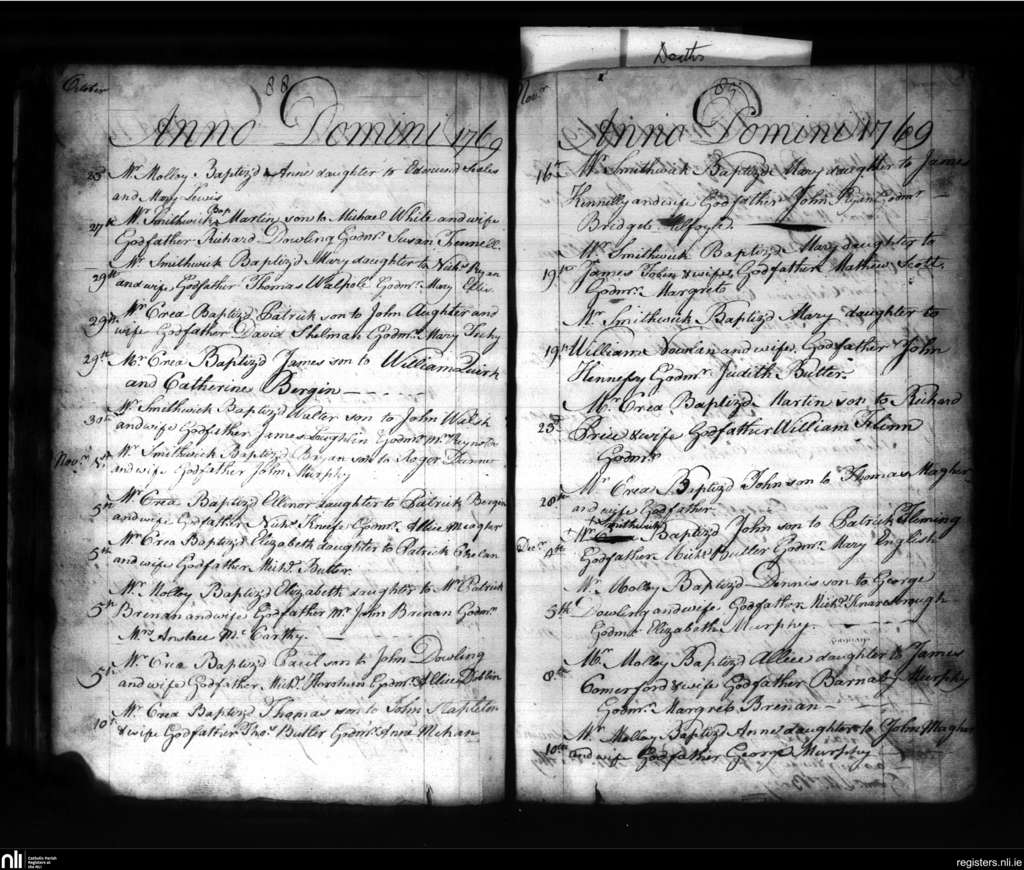 Deaths
October
88
Anno Domini 1769
25th Mr Molloy Baptiz'd Anne daughter to Edmund Scales
and Mary Lewis
27th Mr Smithwick Bap. Martin son to Michael White and wife
Godfather Richard Dowling Godmr. Susan Fennell
29th Mr Smithwick Baptiz'd Mary daughter to Nichs. Ryan
and wife Godfather Thomas Walpole Godmr. Mary Ellis
29th Mr Crea Baptiz'd Patrick son to John Aughter and
wife Godfather David Shelman Godmr. Mary
29th Mr Crea Baptiz'd James son to William Quirk
and Catherine Bergin
30th Mr Smithwick Baptiz'd Walter son to John Walsh
and wife Godfather James Loughlin Godmr. Mrs Reynolds
Novr. 1st Mr Smithwick Baptiz'd Bryan son to Roger
and wife Godfather John Murphy
5th Mr Crea Baptiz'd Ellinor daughter to Patrick Bergin
and wife Godfather Nichs. Knife Godmr. Allice Meagher
5th Mr Crea Baptiz'd Elizabeth daughter to Patrick Phelan
and wife Godfather Michl. Butler
Mr Molloy Baptiz'd Elizabeth daughter to Mr Patrick
5th Brenan and wife Godfather Mr John Brenan Godmr.
Mrs Anstace Mc Carthy.
5th Mr Crea Baptiz'd Paul son to John Dowling
and wife Godfather Michl. Godmr. Allice Doblin
10th Mr Crea Baptiz'd Thomas son to John Stapleton
& wife Godfather Thos. Butler Godmr. Anne Mehan
Novr.
89
Anno Domini 1769
16th Mr Smithwick Baptiz'd Mary daughter to James
Kennelly and wife Godfather John Ryan Godmr.
Bridget
Mr Smithwick Baptiz'd Mary daughter to
19th James Tobin & wife, Godfather Mathew Scott
Godmr. Margret
Mr Smithwick Baptiz'd Mary daughter to
19th William Nowlan and wife, Godfather John
Hennessy Godmr. Judith Butler.
Mr Crea Baptiz'd Martin son to Richard
25th Price & wife Godfather William Flinn
Godmr.
28th Mr Crea Baptiz'd John son to Thomas Magher
and wife Godfather
Smithwick
Decr. 4th Mr Baptiz'd John son to Patrick Fleming
Godfather Nichs. Butler Godmr. Mary English
Mr Molloy Baptiz'd Dennis son to George
5th and wife, Godfather Michl. Knaresbrough
Godmr. Elizabeth Murphy.
Mr Molloy Baptiz'd Allice daughter to James
8th Comerford & wife Godfather Barnaby Murphy
Godmr. Margret Brenan
Mr Molloy Baptiz'd Anne daughter to John Magher
10th and wife Godfather George Murphy
nli
Catholic Parish
Registers at
the NLI
registers.nli.ie